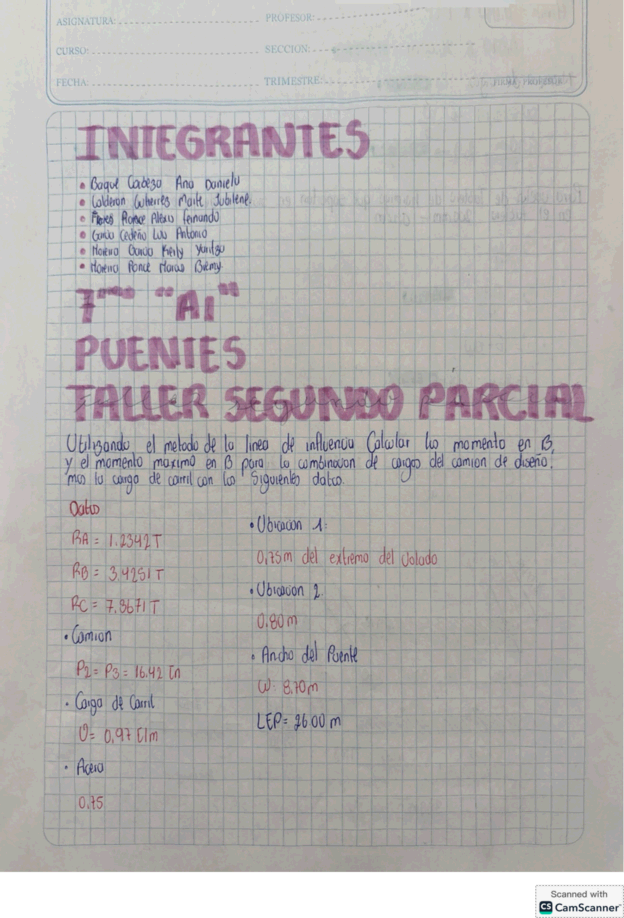 ASIGNATURA:
PROFESOR:
CURSO:
SECCION:
FECHA:
TRIMESTRE:
INTEGRANTES
• Baque Cabeza Ana Daniela
• Calderon Maite Jubilene
• Flores Ponce Alexis Fernando
• Garcia Cedeño Luis Antonio
• Moreno Garcia Kerly
• Moreno Ponce Marcos Bremy
7mo "A1"
PUENTES
TALLER SEGUNDO PARCIAL
Utilizando el metodo de la linea de influencia Calcular los momento en B,
y el momento maximo en B para la combinacion de cargas del camion de diseño,
mas la carga de carril con los Siguientes datos.
Datos
RA = 1.2342 T
RB = 3.4251 T
RC = 7,8671 T
• Camion
P2 = P3 = 16.42 Tn
• Carga de Carril
U = 0,97 T/m
• Acera
0.75
• Ubicacion 1:
0,75m del extremo del Volado
• Ubicacion 2
0.80 m
• Ancho del Puente
W 8,70m
LEP= 2600 m
Scanned with
CS CamScanner